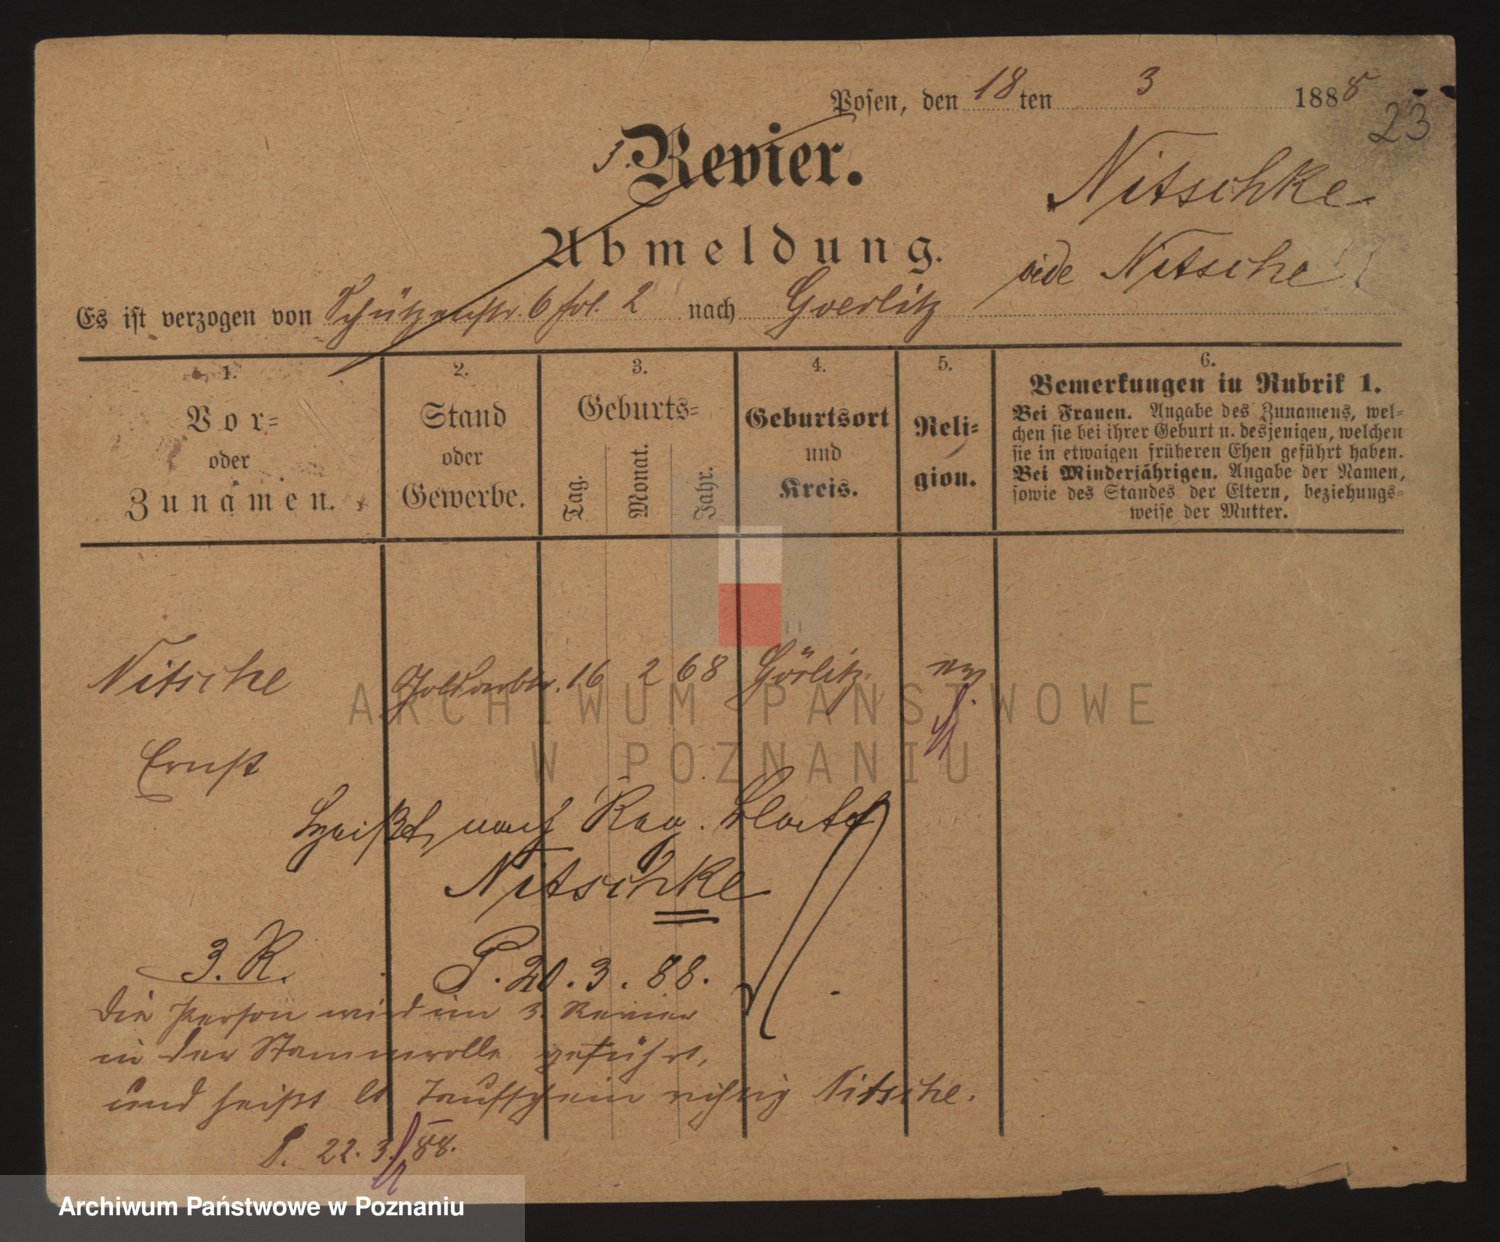 Posen, den 18 ten 3 1888
23
3. Revier.
Nitschke
Abmeldung.
vide Nitsche
Es ist verzogen von Schützenstr. 6 nach Goerlitz
1.
Vor-
oder
Zunamen.
2.
Stand
oder
Gewerbe.
3.
Geburts-
Tag. Monat. Jahr.
4.
Geburtsort
und
Kreis.
5.
Reli-
gion.
6.
Bemerkungen in Rubrik 1.
Bei Frauen. Angabe des Zunamens, wel-
chen sie bei ihrer Geburt u. desjenigen, welchen
sie in etwaigen früheren Ehen geführt haben.
Bei Minderjährigen. Angabe der Namen,
sowie des Standes der Eltern, beziehungs-
weise der Mutter.
Nitsche 16 2 68 Görlitz
ARCHIWUM PAŃSTWOWE
W POZNANIU
Ernst
Heißt nach Reg. Blatt
Nitschke
3. R. P. 20.3.88.
Die Person wird im 3. Revier
in der Stammrolle geführt,
und heißt lt Taufschein richtig Nitsche.
P. 22.3.88.
Archiwum Państwowe w Poznaniu